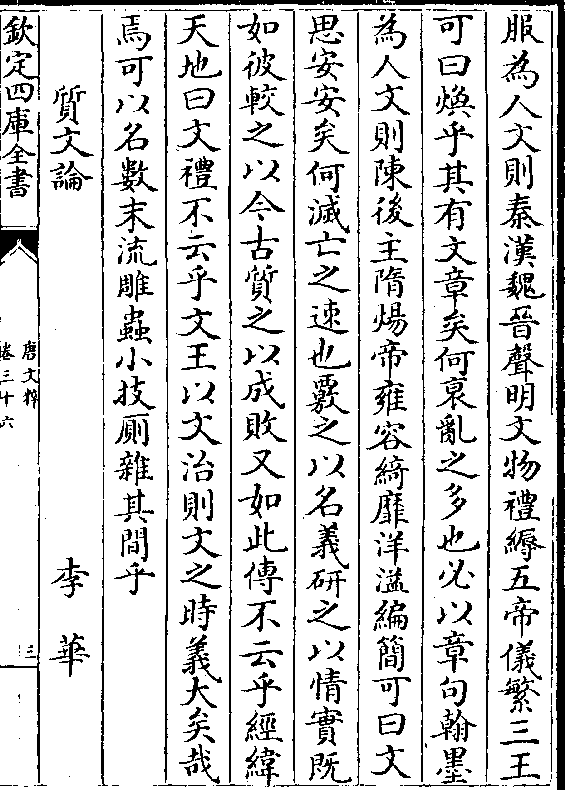 服為人文則秦漢魏晉聲明文物禮縟五帝儀繁三王
可曰煥乎其有文章矣何衰亂之多也必以章句翰墨
為人文則陳後主隋煬帝雍容綺靡洋溢編簡可曰文
思安安矣何滅亡之速也覈之以名義研之以情實既
如彼較之以今古質之以成敗又如此傳不云乎經緯
天地曰文禮不云乎文王以文治則文之時義大矣哉
焉可以名數末流雕蟲小技厠雜其間乎
質文論 李華
欽定四庫全書
唐文粹
卷三十六
三